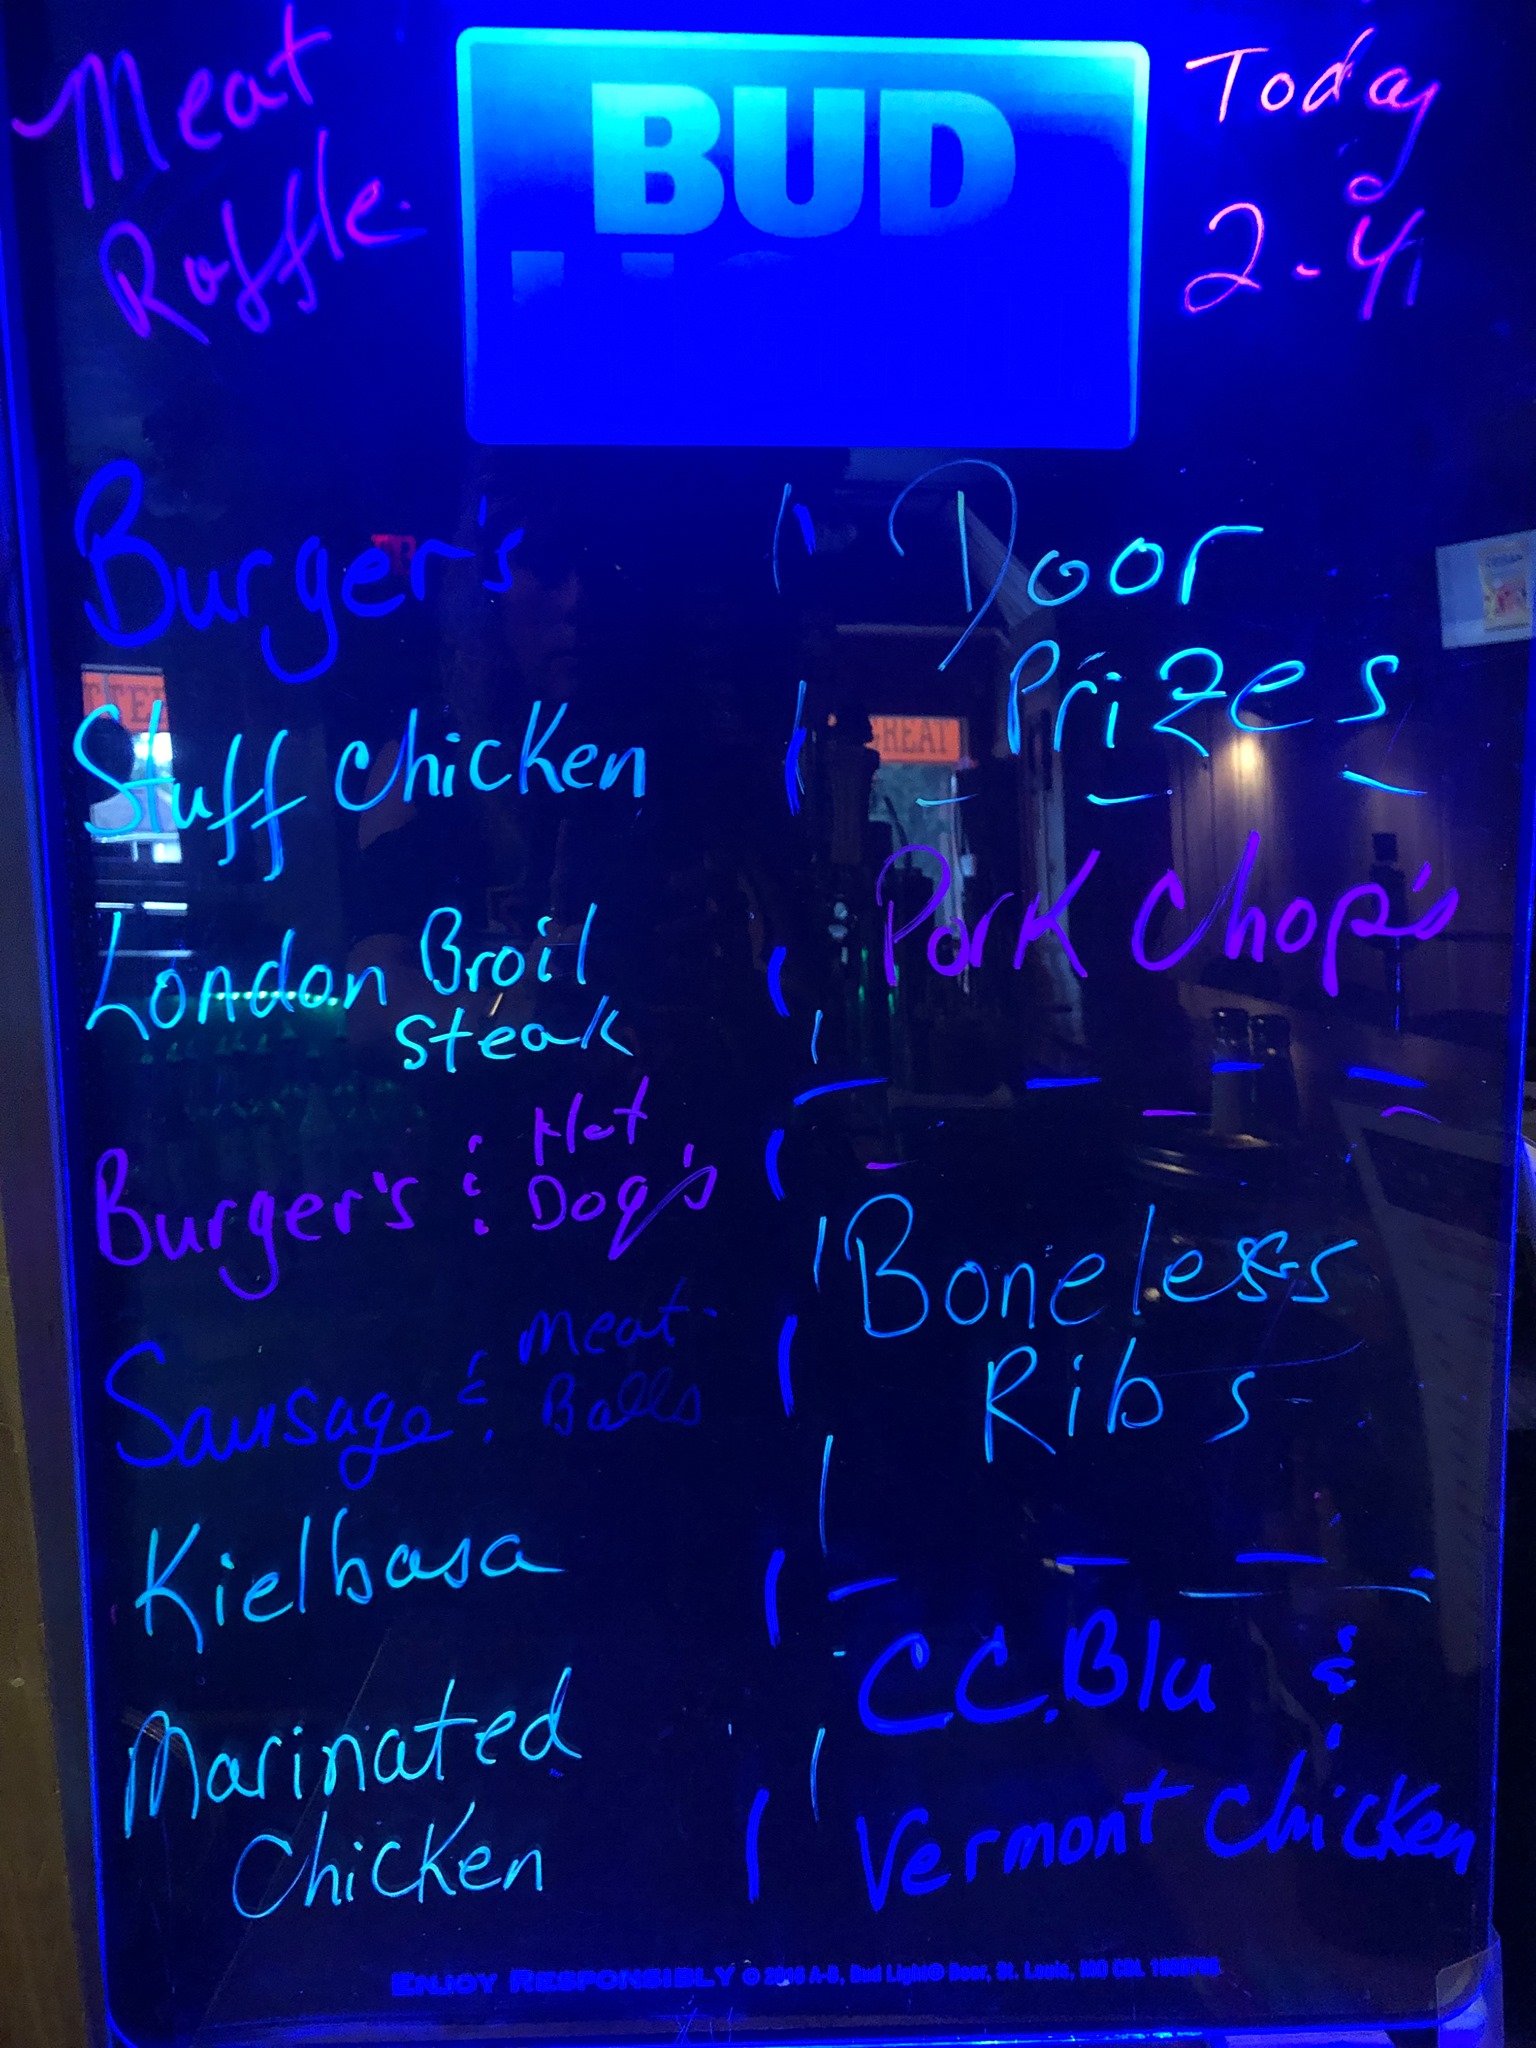 Meat
Raffle
BUD
Today
2-4
Burger's
Stuff Chicken
London Broil
Steak
Burger's & Hot
Dog's
Sausage & Meat-
Balls
Kielbasa
Marinated
Chicken
Door
Prizes
Pork Chop's
Boneless
Ribs
C.C. Blu &
Vermont Chicken
TREAT
ENJOY RESPONSIBLY
A-B, Bud Light® Beer, St. Louis, MO